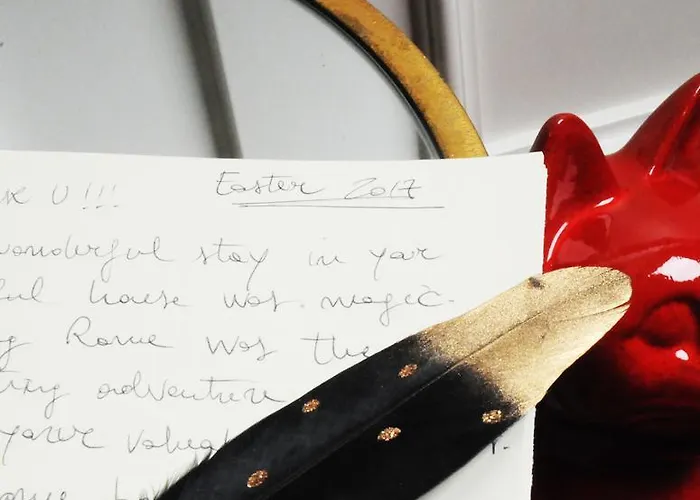 U!!! Easter 2017
wonderful stay in your
ful house was magic.
Rome was the
adventure
your